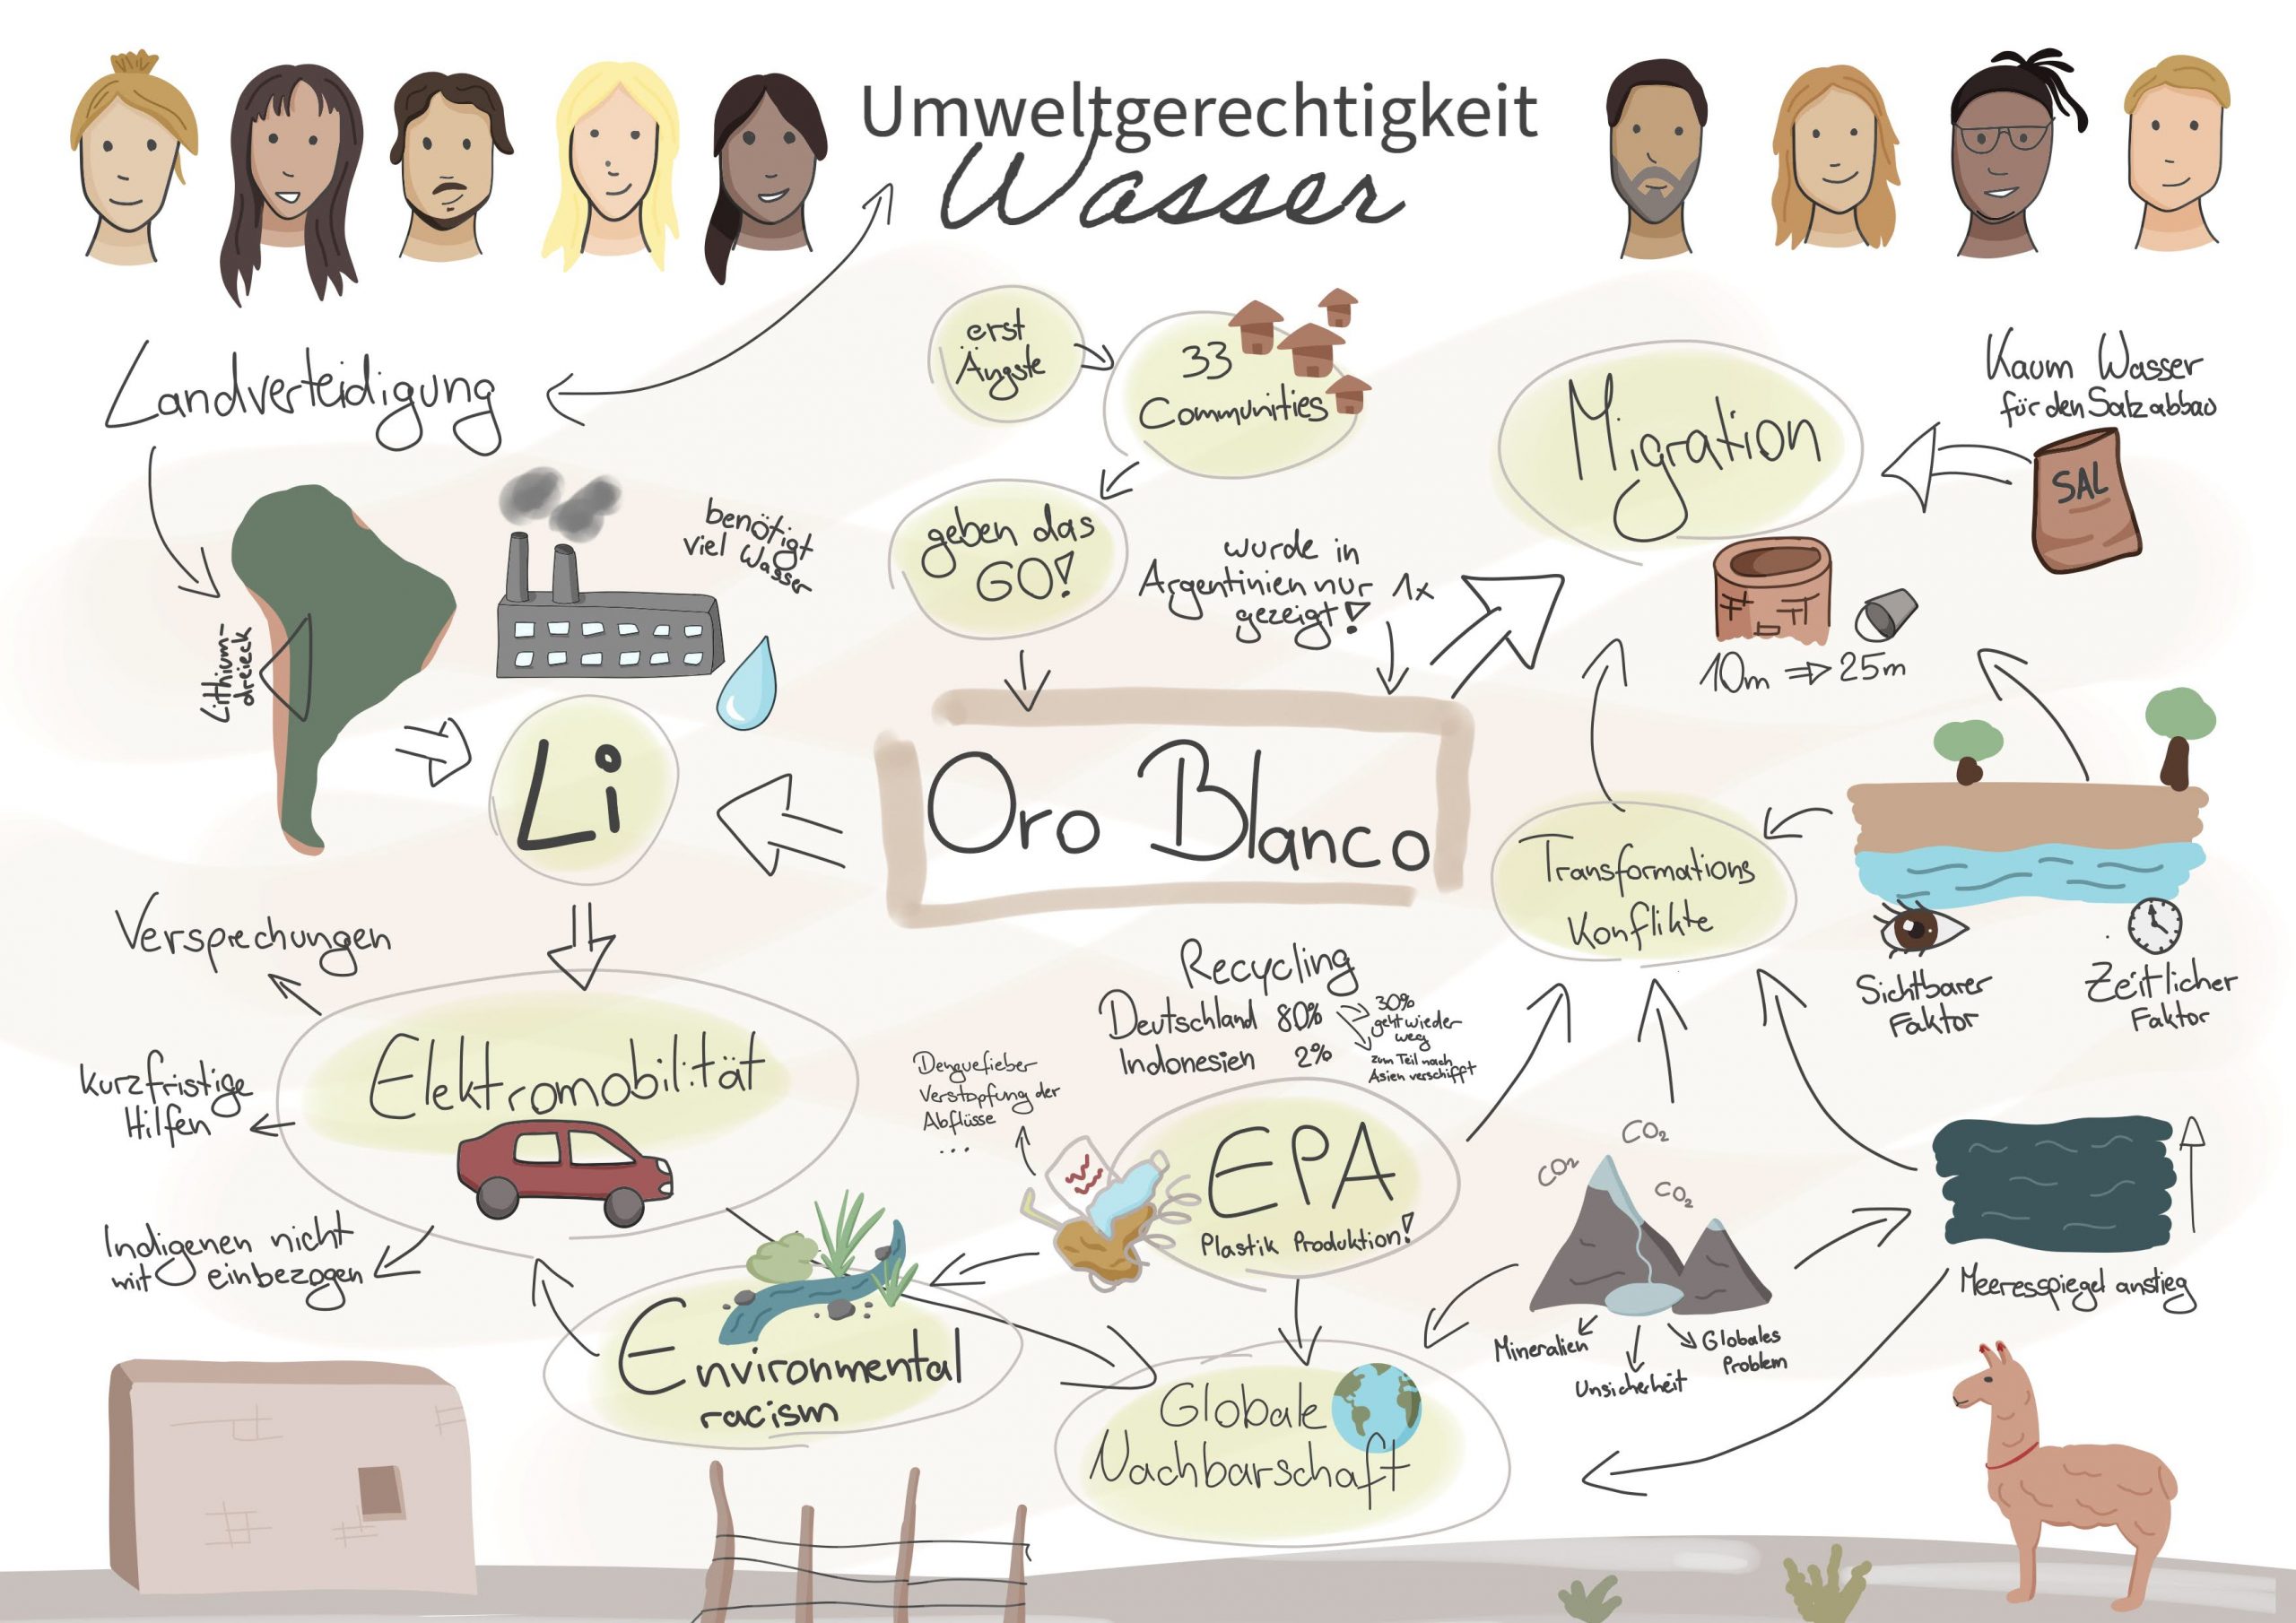 Umweltgerechtigkeit
Wasser
Landverteidigung
erst
Ängste
33
Communities
geben das
GO!
wurde in
Argentinien nur 1x
gezeigt!
Migration
Kaum Wasser
für den Salzabbau
SAL
10m ⇒ 25m
benötigt
viel Wasser
Lithium-
dreieck
Li
Oro Blanco
Transformations
Konflikte
Sichtbarer
Faktor
Zeitlicher
Faktor
Versprechungen
Elektromobilität
kurzfristige
Hilfen
Indigenen nicht
mit einbezogen
Recycling
Deutschland 80%
Indonesien 2%
30%
geht wieder
weg
zum Teil nach
Asien verschifft
Denguefieber
Verstopfung der
Abflüsse
...
EPA
Plastik Produktion!
CO₂
CO₂
CO₂
Mineralien
Unsicherheit
Globales
Problem
Meeresspiegel anstieg
Environmental
racism
Globale
Nachbarschaft